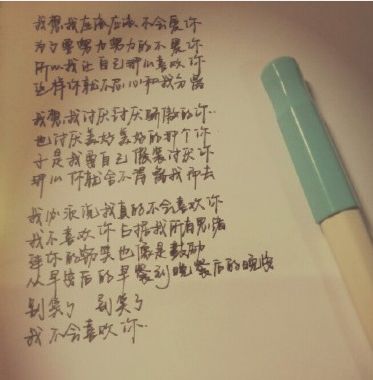 我想我应该应该不会爱你
为了要努力努力的不爱你
所以我让自己那么喜欢你
这样你就不忍心和我分离
我想我讨厌讨厌骄傲的你
也讨厌美好美好的那个你
于是我要自己假装讨厌你
那么你就舍不得离我而去
我必须说我真的不会喜欢你
我不喜欢你占据我所有思绪
连你的嘲笑也像是鼓励
从早安后的早餐到晚餐后的晚安
别笑了 别笑了
我不会喜欢你..